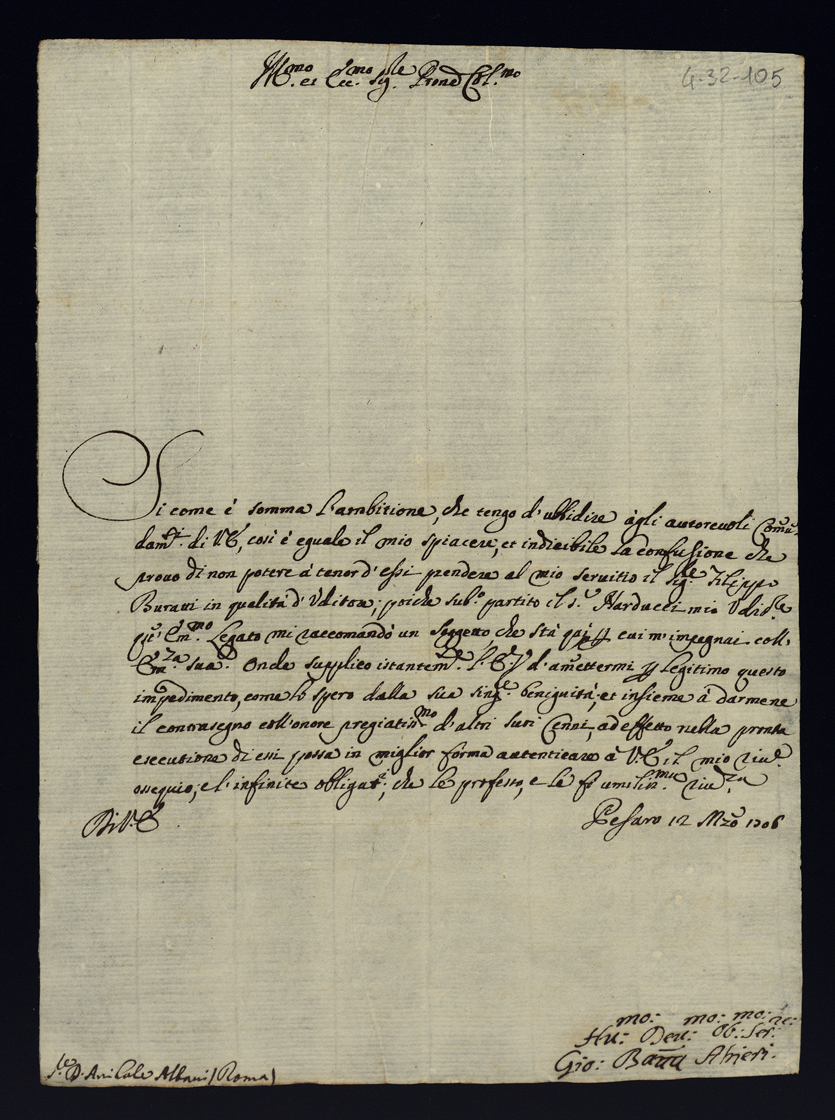 Ill.mo et Ecc.mo Sig.re Prone Col.mo
4-32-105
Si come è somma l'ambitione, che tengo d'ubbidire àgli autorevoli Coman-
dam.ti di V.E., così è eguale il mio spiacere, et indicibile la confusione che
provo di non potere à tenor d'essi prendere al mio servitio il Sig.re Filippo
Buratti in qualità d'Uditore; poiche sub.o partito il S.r Narducci mio Udit.re
qu.o Em.mo Legato mi raccomandò un soggetto, che stà quì, per cui m'impegnai coll'
Em.za sua. Onde supplico istantem.te l'E.V. d'amettermi per legitimo questo
impedimento, come lo spero dalla sua sing.re benignità; et insieme à darmene
il contrasegno coll'onore pregiatiss.mo d'altri suoi Cenni, ad effetto nella pronta
esecutione di essi possa in miglior forma autenticare à V.E. il mio riv.e
ossequio, e l'infinite obligat.i, che le professo, e le fò umiliss.ma riv.za
Di V.E.
Pesaro 12 Mzo 1706
Hu.mo: Dev.mo: Ob.mo: Ser.re:
Gio: Batta Abrieri.
S.re D. Anibale Albani (Roma)